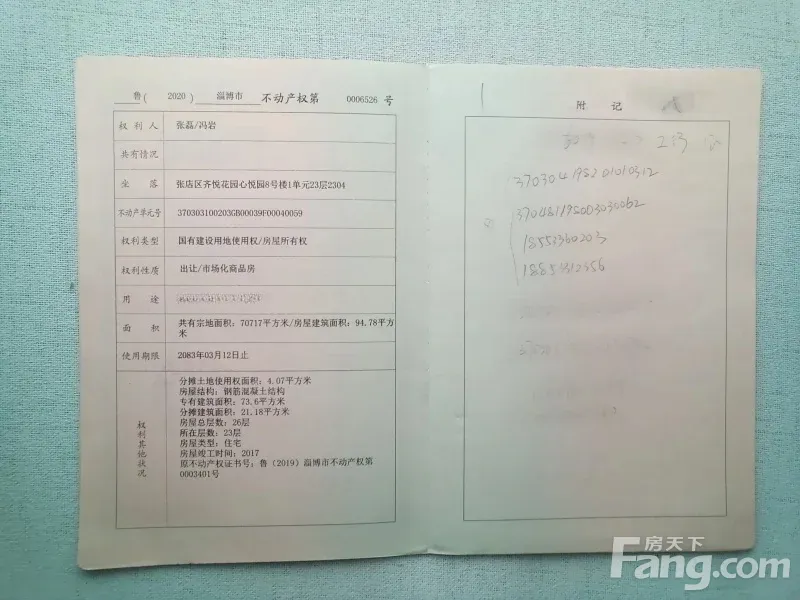 鲁( 2020 ) 淄博市 不动产权第 0006526 号
权利人 张磊/冯岩
共有情况
坐落 张店区齐悦花园心悦园8号楼1单元23层2304
不动产单元号 370303100203GB00039F00040059
权利类型 国有建设用地使用权/房屋所有权
权利性质 出让/市场化商品房
用途
面积 共有宗地面积:70717平方米/房屋建筑面积:94.78平方
米
使用期限 2083年03月12日止
权利其他状况
分摊土地使用权面积:4.07平方米
房屋结构:钢筋混凝土结构
专有建筑面积:73.6平方米
分摊建筑面积:21.18平方米
房屋总层数:26层
所在层数:23层
房屋类型:住宅
房屋竣工时间:2017
原不动产权证书号:鲁(2019)淄博市不动产权第
0003401号
附记
213
370304198201010312
房天下
Fang.com